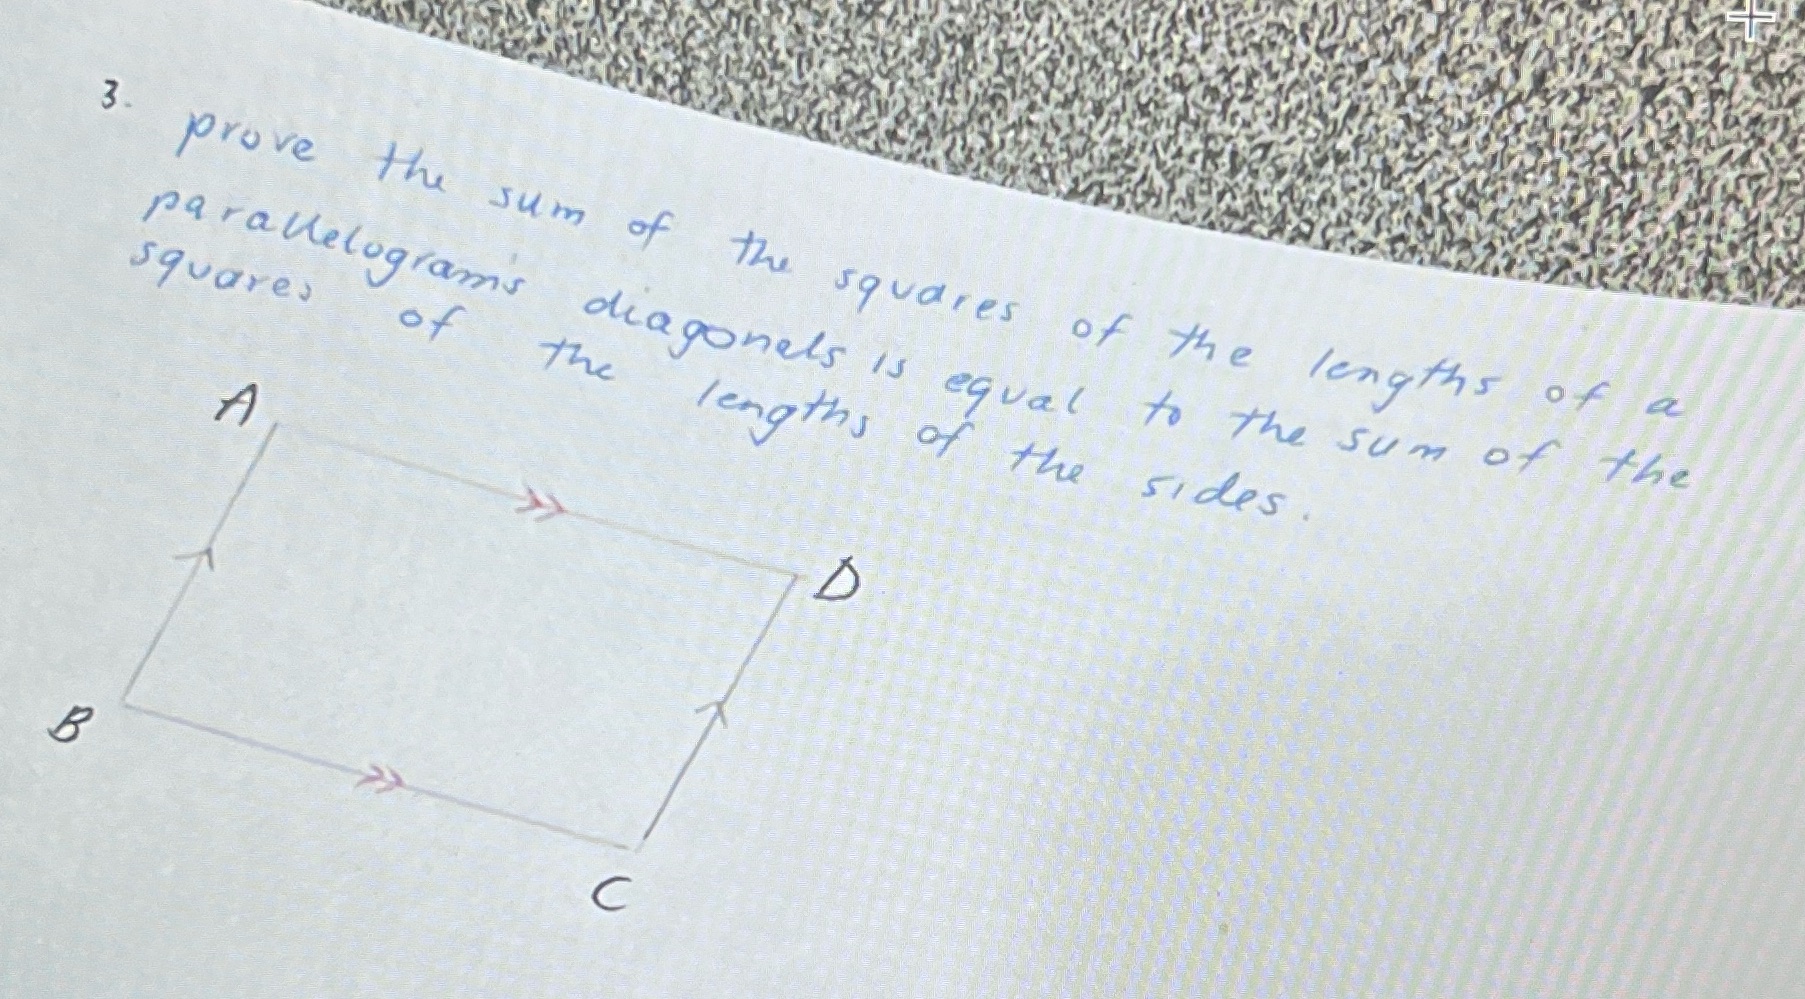 3.
prove the sum of the squares of the lengths of a
parallelogram's diagonals is equal to the sum of the
squares of the lengths of the sides.
A
D
B
C